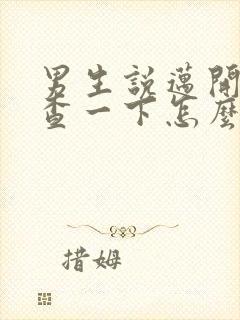 男生說邁開
查一下怎麼
措姆